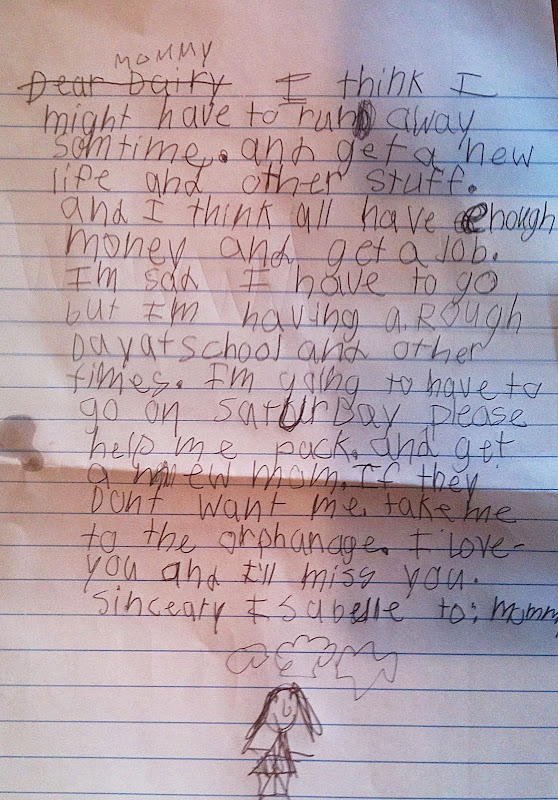 mommy
Dear Dairy I think I
might have to run away
somtime. and get a new
life and other stuff.
and I think all have enough
money and get a Job.
I'm sad I have to go
but I'm having a Rough
Day at school and other
times. I'm going to have to
go on SaturDay please
help me pack. and get
a new mom. If they
Dont want me. take me
to the orphanage. I love-
you and I'll miss you.
Sinceary Isabelle to: momm